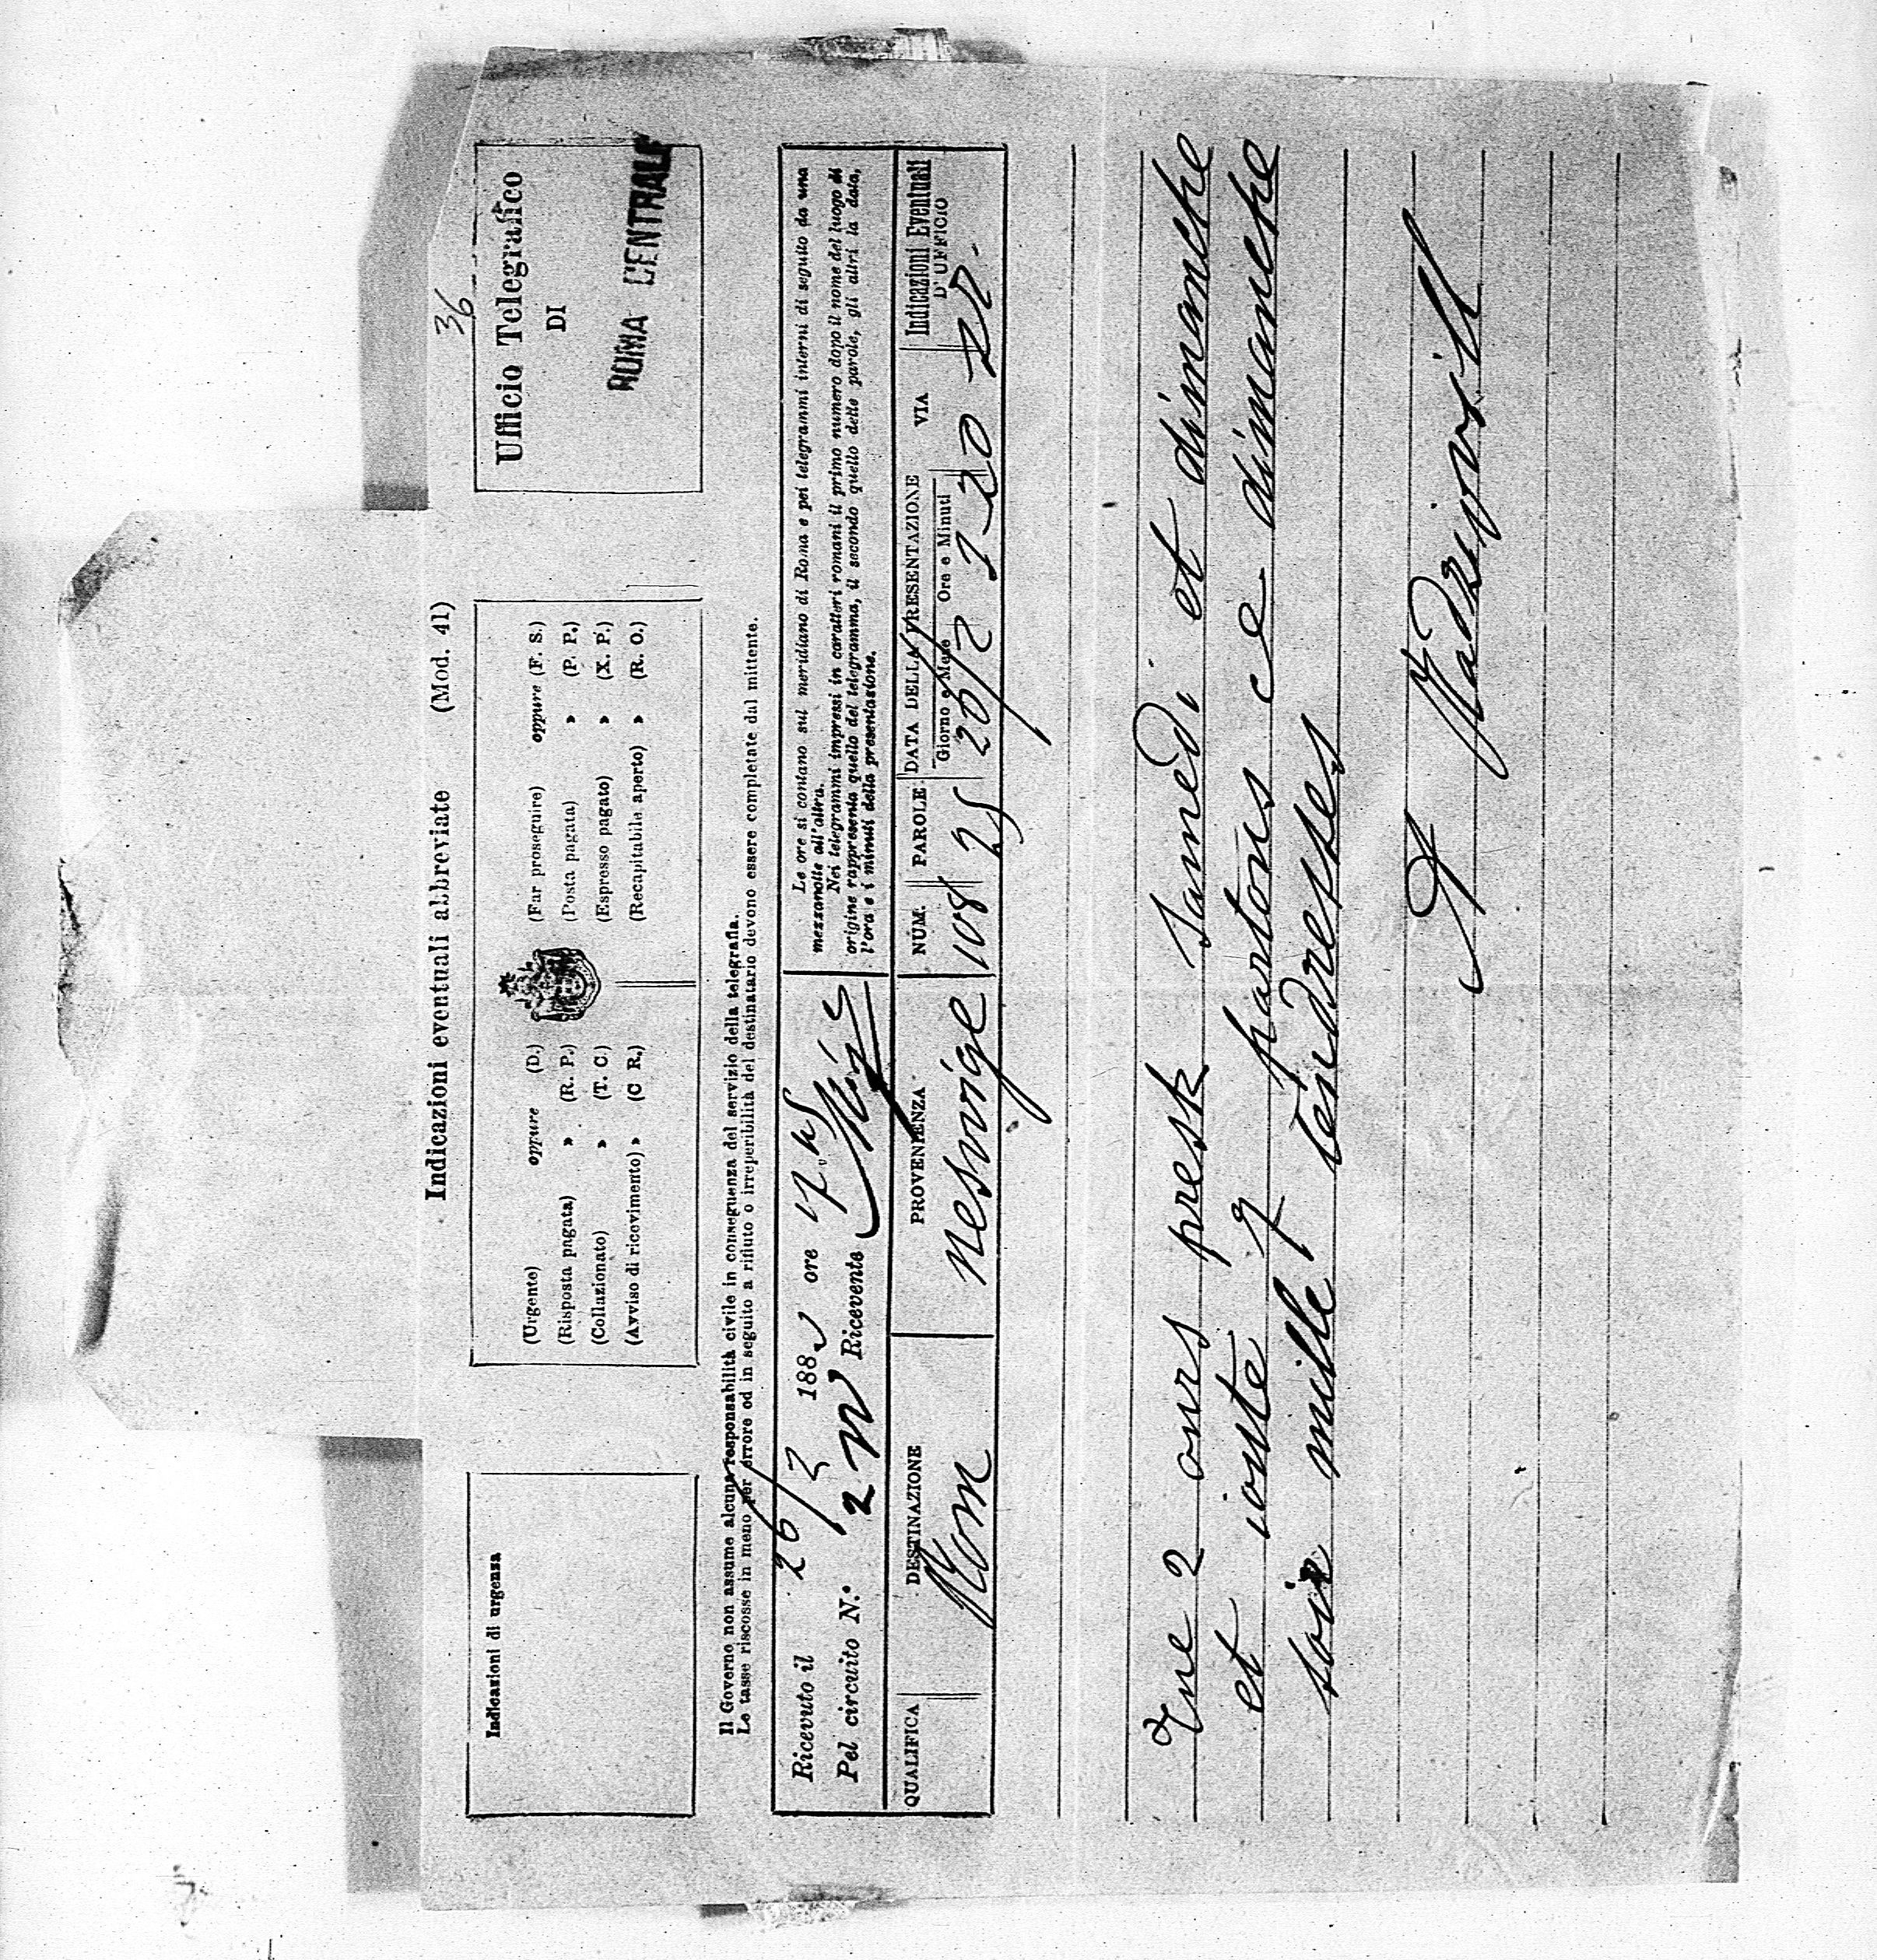 36
Indicazioni eventuali abbreviate (Mod. 41)
Indicazioni di urgenza
(Urgente) oppure (D.)
(Risposta pagata) » (R. P.)
(Collazionato) » (T. C.)
(Avviso di ricevimento) » (C R.)
(Far proseguire) oppure (F. S.)
(Posta pagata) » (P. P.)
(Espresso pagato) » (X. P.)
(Recapitabile aperto) » (R. O.)
Ufficio Telegrafico
DI
ROMA CENTRALE
Il Governo non assume alcuna responsabilità civile in conseguenza del servizio della telegrafia.
Le tasse riscosse in meno per errore od in seguito a rifiuto o irreperibilità del destinatario devono essere completate dal mittente.
Ricevuto il 26/2 188 ore
Pel circuito N.° 2 Ricevente
Le ore si contano sul meridiano di Roma e pei telegrammi interni di seguito da una
mezzanotte all'altra.
Nei telegrammi impressi in caratteri romani il primo numero dopo il nome del luogo di
origine rappresenta quello del telegramma, il secondo quello delle parole, gli altri la data,
l'ora e i minuti della presentazione.
QUALIFICA DESTINAZIONE PROVENIENZA NUM. PAROLE DATA DELLA PRESENTAZIONE VIA Indicazioni Eventuali
Giorno e Mese Ore e Minuti D'UFFICIO
Rom nesvige 108 25 26/2 7-20
Tue 2 ours presk samedi et dimanche
et ioute y partons ce dimanche
soir mille tendresses
A Radzivill